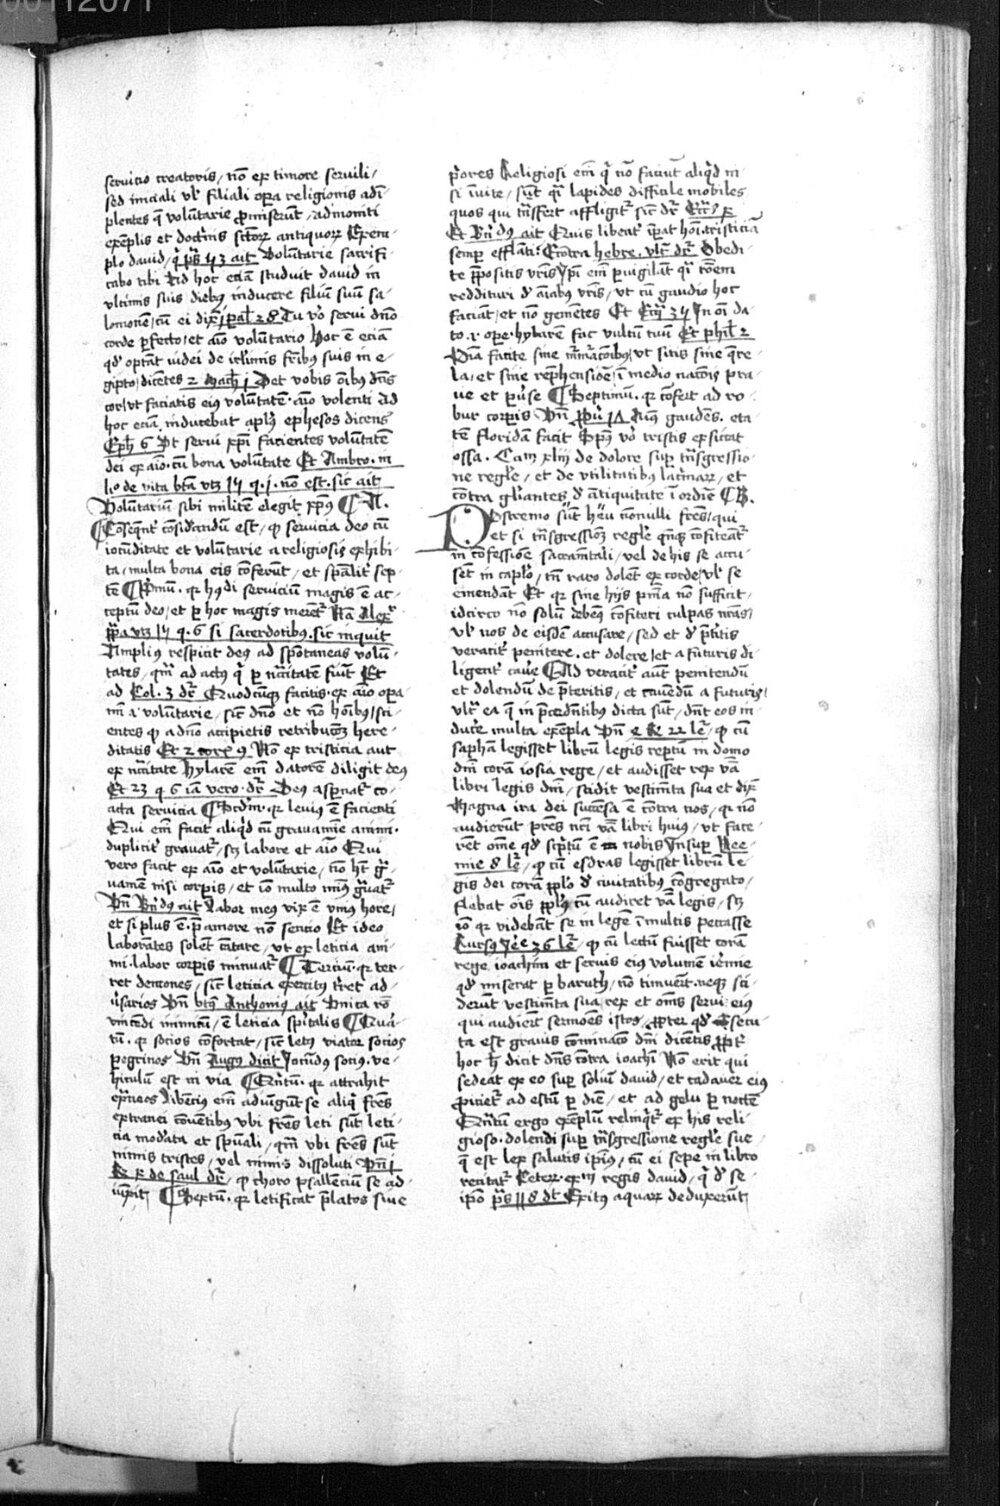 00112071
seruicio creatoris / nō ex timore seruili /
sed iniciali vl' filiali opera religionis adī
plentes q̄ volūtarie ꝓmiserūt / admoniti
exēplis et doctīnis sctōꝝ antiquoꝝ Exem
plo dauid / q̇ ps̄ 53 ait Volūtarie sacrifi
cabo tibi Ad hoc eciā studuit dauid in
vltimis suis diebus inducere filiū suū sa
lomonē / cū ei dix̄ j pal' 28 Tu v̊o serui dn̄o
corde ꝑfecto / et aīo volūtario Hoc ē eciā
qd' optāt iudei de irl'imis fr̄ibus suis in e
gipto / dicētes 2 mach̄ j Det vobis oībus dn̄s
cor / vt faciatis eius volūtatē aīo volenti Ad
hoc eciā inducebat apl'us ephesos dicens
Eph̄ 6 Vt serui xp̄i facientes volūtatē
dei ex aīo / cū bona volūtate Et Ambro. in
li° de vita bt̄a vtꝫ 15 q. j. nō est. sic ait
Volūtariū sibi militē elegit xp̄us ¶ A.
¶ Cōseqn̄t cōsid'andū est / ꝙ seruicia deo cū
iocūditate et volūtarie a religiosis exhibi
ta / multa bona eis cōferūt / et sp̄alit' sep
tē ¶ Pͥmū. qꝛ hꝰdi seruiciū magis ē ac
ceptū deo / et ꝑ hoc magis meret' Nā Alex̄
pp̄a vtꝫ 15 q. 6 si sacerdotibus. sic inquit
Amplius respicit deus ad spōtaneas volū
tates / qm̄ ad actus q̇ ꝑ nc̄citatē fiūt Et
ad Col. 3 dr̄ Quodcūqꝫ facitis. ex aīo opa
mī ⁊ volūtarie / sic dn̄o et nō hoībus / sci
entes ꝙ a dn̄o accipietis retribucōꝫ here
ditatis Et 2 cor 9 Nō ex tristicia aut
ex nc̄citate hylarē em̄ datorē diligit deus
Et 23 q 6 iā vero. dr̄ Deus aspnat' co
acta seruicia ¶ Scd̄m. qꝛ leuius ē facienti
Qui em̄ facit aliqd' cū grauamīe animi.
duplicit' grauat' / sꝫ labore et aīo Qui
vero facit ex aīo et volūtarie / nō h̄t gͣ
uamē nisi corpis / et iō multo mīus gͣuat'
Vn̄ Bn̄dus ait Labor meus vix ē vnius hore /
et si plus ē. p̄ amore nō sencio Et ideo
laborātes solēt cātare / vt ex leticia ani
mi. labor corpis minuat' ¶ Terciū. qꝛ ter
ret demones / sic leticia exercitus t'ret ad
ūsarios Vn̄ bt̄us Anthonius ait Vnica rō
vincēdi inimicū / ē leticia sp̄italis ¶ Quar
tū. qꝛ socios cōfortat / sic letus viator socios
pegrinos Vn̄ Augus dicit Iocūdus socius. ve
hiculū est in via ¶ Qn̄tū. qꝛ attrahit
ext'neos Libēcius em̄ adiūgūt se aliq̇ fr̄es
extranei cōuētibus vbi fr̄es leti sūt leti
cia mod'ata et spūali / qm̄ vbi fr̄es sūt
nimis tristes / vel nimis dissoluti Vn̄ j
de saul dr̄ / ꝙ choro psallenciū se ad
¶ Sextū. qꝛ letificat p̄latos siue
p̄ores Religiosi em̄ q̇ nō faciūt aliqd' ni
si īuite / sūt qͣi lapides difficile mobiles
quos qui tn̄sfert affligit' sic dr̄
Et Bn̄dus ait Quis libēt' īpat hoī. tristiciā
semp efflāti Cōtra hebre. vlt' dr̄ Obedi
te p̄positis vr̄is / Ip̄i em̄ ꝑuigilāt qͣi rōem
reddituri ꝓ aīabus vr̄is / vt cū gaudio hoc
faciāt / et nō gemētes Et Eccͥ 35 In oī da
to. ⁊ ope. hylarē fac vultū tuū Et phil' 2
Oīa facite sine mͬmͬacōibus / vt sitis sine qͬre
la / et sine rep̄hensiōe / ī medio nacōis pra
ue et puͬse ¶ Septimū. qꝛ cōfert ad ro
bur corpis Vn̄ Pͬou' 17 Aīus gaudēs. eta
tē floridā facit Spūs v̊o tristis exsiccat
ossa. Cam xliij de dolore sup tn̄sgressio
ne regle / et de vtilitatibus lacͬmaꝝ / et
cōtra gl'iantes d' ātiquitate ī ordīe ¶ B.
Postremo sūt heu nōnulli fr̄es / qui
et si tn̄sgressiōꝫ regle qn̄qꝫ cōfiteāt'
in cōfessione sacramētali / vel de his se accu
sēt in capl'o / tn̄ raro dolēt ex corde / vl' se
emendāt Et qꝛ sine hijs pm̄a nō sufficit /
idcirco nō solū debemꝰ cōfiteri culpas nr̄as /
vl' nos de eisdē accusare / sed et d' p̄titis
veracit' penitere. et dolere / et a futuris di
ligent' cau'e ¶ Ad veracit' autē penitendū
et dolendū de p̄teritis / et cauendū a futuris /
vlt' ea q̄ in p̄cedn̄tibus dicta sūt / dn̄t eos in
ducͬe multa exēpla Vn̄ 4 R 22 le' / ꝙ cū
saphā legisset librū legis reptū in domo
dn̄i corā iosia rege / et audisset rex v̄ba
libri legis dn̄i / scidit vestimēta sua et dix̄
Magna ira dei succēsa ē cōtra nos / qꝛ nō
audierūt pr̄es nr̄i v̄ba libri huius / vt face
rēt om̄e qd' scͥptū ē nobis Insup Nee
mie 8 le' / ꝙ cū esdras legisset librū le
gis dei corā pp̄lo d' ciuitatibus cōgregato /
flebat oīs pp̄lus cū audiret v̄ba legis / sꝫ
iō qꝛ videbāt se in lege ī multis peccasse
Rursus Jere 36 le' / ꝙ cū lectū fuisset corā
rege ioachim et seruis eius volumē ieͬmie
qd' miserat ꝑ baruch / nō timuerūt neqꝫ sci
derūt vestimēta sua / rex et om̄s serui eius
qui audierūt sermōes istos. ꝓpter qd' secu
ta est grauis cōminacō dn̄i dicētis ꝓpt'
hoc h̄ dicit dn̄s cōtra ioachī Nō erit qui
sedeat ex eo sup soliū dauid / et cadauer eius
ꝓiciet' ad estū ꝑ diē / et ad gelu ꝑ noctē
Qn̄tū ergo exēplū relinqͥt' ex his reli
gioso. dolendi sup tn̄sgressione regle sue /
q̄ est lex salutis ip̄ius / cū ei sepe in libro
recitat' Ceteꝝ exm̄ regis dauid / q̇ d' se
ip̄o ps̄ 118 dt Exitus aquaꝝ deduxerūt